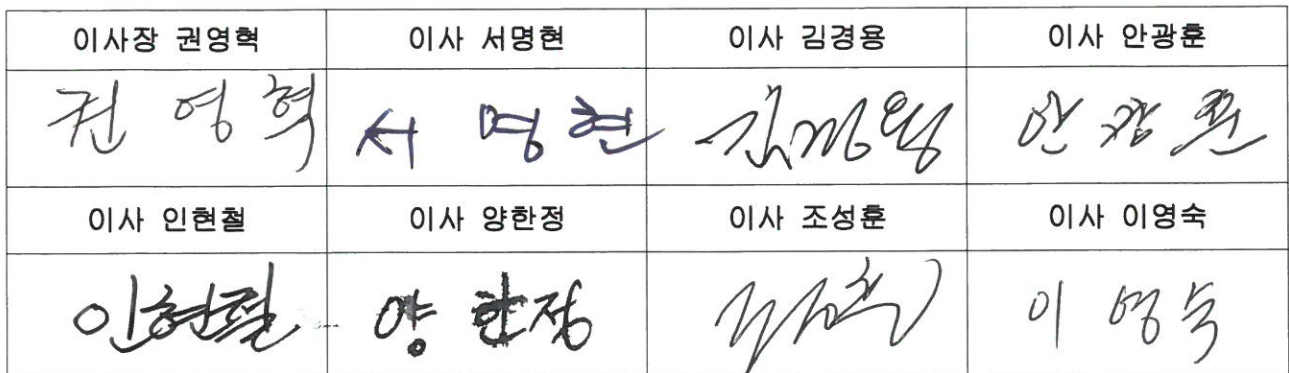 이사장 권영혁 이사 서명현 이사 김경용 이사 안광훈
권 영 혁 서 명 현 김경용 안 광 훈
이사 인현철 이사 양한정 이사 조성훈 이사 이영숙
인현철 양 한정 이 영숙